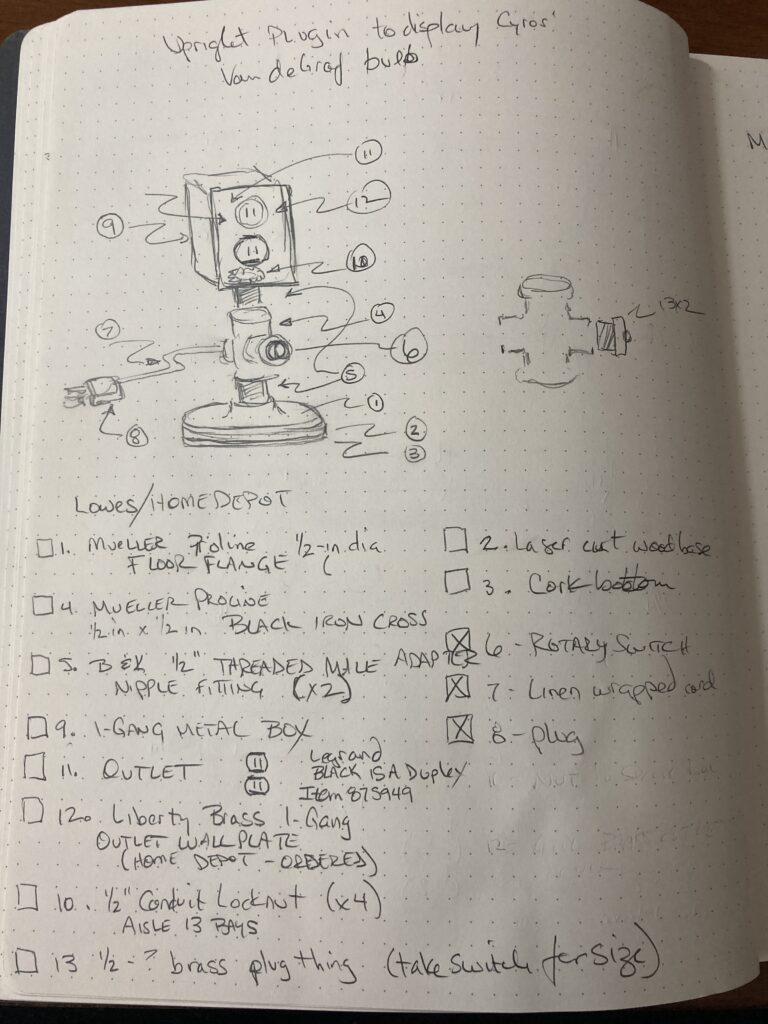 Upright Plugin to display Cyros'
Van de Graf bulb
11
12
9
10
4
7
6
5
1
8
2
3
13x2
M
Lowes/HOME DEPOT
1. MUELLER Proline 1/2-in. dia
FLOOR FLANGE (
2. Laser cut wood base
3. Cork bottom
4. MUELLER PROLINE
1/2 in x 1/2 in. BLACK IRON CROSS
5. B & K 1/2" THREADED MALE ADAPTER
NIPPLE FITTING (x2)
6 - ROTARY SWITCH
7 - Linen wrapped cord
8 - plug
9. 1-GANG METAL BOX
11. OUTLET
Legrand
BLACK 15A Duplex
Item 875949
12. Liberty Brass 1-Gang
OUTLET WALL PLATE
(HOME DEPOT - ORDERED)
10. 1/2" Conduit Locknut (x4)
AISLE 13 BAY5
13 1/2 - ? brass plug thing (take switch for size)